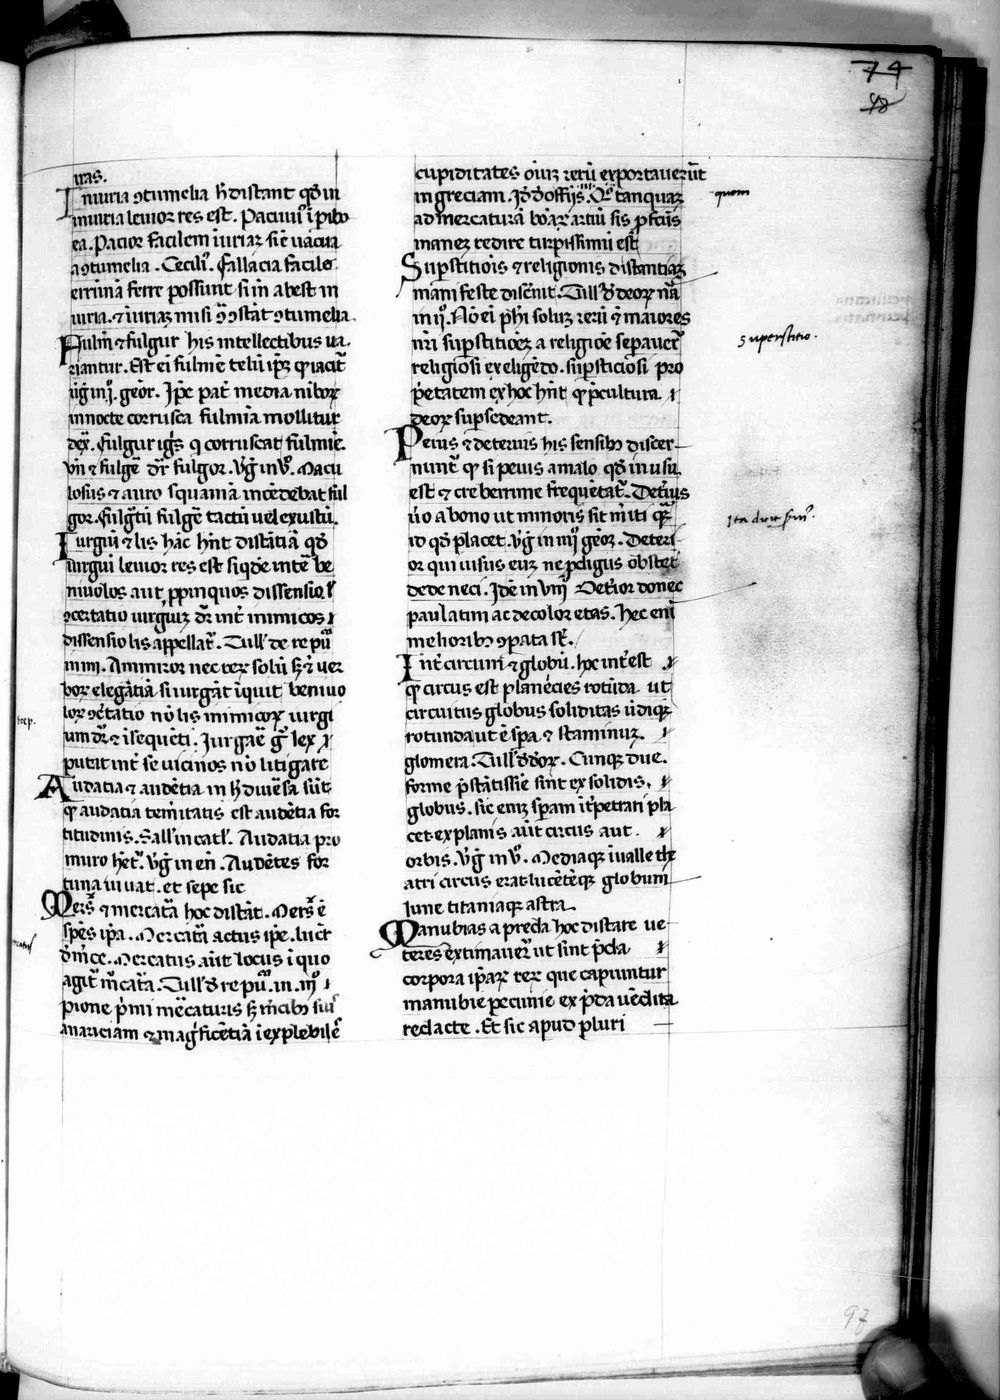 74
98
uras.
Iniuria ꝯtumelia h̄ distant qd̄ in
iniuria leuior res est. Pacuui' ī pibo
ea. Pacior facilem iuriaꝫ si ē uacua
a ꝯtumelia. Cecili'. fallacia facile
ferre possunt si in abest in
iuria. ⁊ iuriaꝫ nisi ꝯ ꝯstat ꝯtumelia.
Fulm̄ ⁊ fulgur his intellectibus ua.
riantur. Est ei fulmē telū ip̄ꝫ qꝫ iacit̄
ūg̅ in j. geor. Ip̄e pat̄ media niboꝝ
in nocte corrusca fulmīa mollitur
dex̄. fulgur ignꝫ q corruscat fulmīe.
vn̄ ⁊ fulgē dr̄ fulgor. v̄g̅ in v°. Macu
losus ⁊ auro squamā incēdebat ful
gor. fulgtū fulgē tactū uel exustū.
Iurgiū ⁊ lis hāc hn̄t distātiā qd̄
iurgiū leuior res est siqđe intē be
niuolos aut ꝓpinquos dissensio l̄
ꝯcertatio iurgiuꝫ dr̄ int̄ inimicos
dissensio lis appellat̄. Tull' de re pu
iiii. Ammiror nec reꝝ solū sꝫ ⁊ uer
boꝝ elegātiā si iurgāt īquit beniuo
loꝝ ꝯc̄tatio nō lis inimicoꝝ iurgi
um dr̄ ⁊ īsequēti. Iurgaē gͥ lex
putat int̄ se uicinos nō litigare
Audatia ⁊ audētia in h̄ diuēsa sūt
qꝫ audatia temitatis est audētia for
titudinis. Sall' in catl'. Audatia pro
muro het̄. v̄g̅ in en̄. Audētes for
tuna iuuat. et sepe sic
Mers̄ ⁊ mercat̄a hoc distāt. Mers̄ ē
spēs ip̄a. Mercat̄a actus ip̄e. lucr̄
Mercatus aūt locus ī quo
agit̄ m̄cat̄a. Tull' đ re pu. in. iij
pione p̄mi mēcaturis sꝫ m̄cibꝫ sui'
auariciam ⁊ magnficētiā ī explebilē
cupiditates ōiuꝫ rerū exportauerūt
in greciam. Iđ đ offijs. Q° tanquaꝫ
ad mercaturā bōaꝝ artiū sis ꝓfc̄us
inanez redire turpissimū est
Suꝑstitiōis ⁊ religionis distantiaꝫ
mani feste disc̄nit. Tull' đ deoꝝ nā
in ij. Nō ei ph̄i soluꝫ uerū ⁊ maiores
nr̄i suꝑstitiōeꝫ a religiōe seꝑauer̄
religiosi ex eligēdo. suꝑsticiosi pro
p̄etatem ex hoc hn̄t qꝫ p̄cultura
deoꝝ suꝑsedeant.
Peius ⁊ deterius his sensibꝫ discer
nunt̄ qꝫ si peius a malo qđ in usu
est ⁊ creberrime frequētat̄. Det̄ius
ūo a bono ut minoris sit m̄iti
id qđ placet. v̄g̅ in iiij geoꝝ. Deteri
or qui uisus euꝫ ne ꝓdigus obstet
dede neci. Idē in viij Det̄ior donec
paulatim ac decolor etas. hec eni
melioribꝫ ꝯpata st̄.
Int̄ circum ⁊ globū. hoc int̄est
qꝫ circus est planēcies rotūda ut
circuitus globus soliditas ūdiqꝫ
rotunda ut ē spa ⁊ staminuꝫ.
glomera. Tull' đ đoꝝ. Cunqꝫ due.
forme p̄stātissīe sint ex solidis.
globus. sic eniꝫ speram īt̄petrari pla
cet. ex planis aūt circus aut.
orbis. v̄g̅ in v°. Mediaqꝫ ī ualle the
atri circus erat. lucētēqꝫ globum
lune titaniaqꝫ astra.
Manubias a preda hoc distare ue
teres extimauer̄ ut sint p̄da
corpora ip̄aꝝ reꝝ que capiuntur
manubie pecunie ex p̄da uēdita
redacte. Et sic apud pluri
quom
superstitio.
97